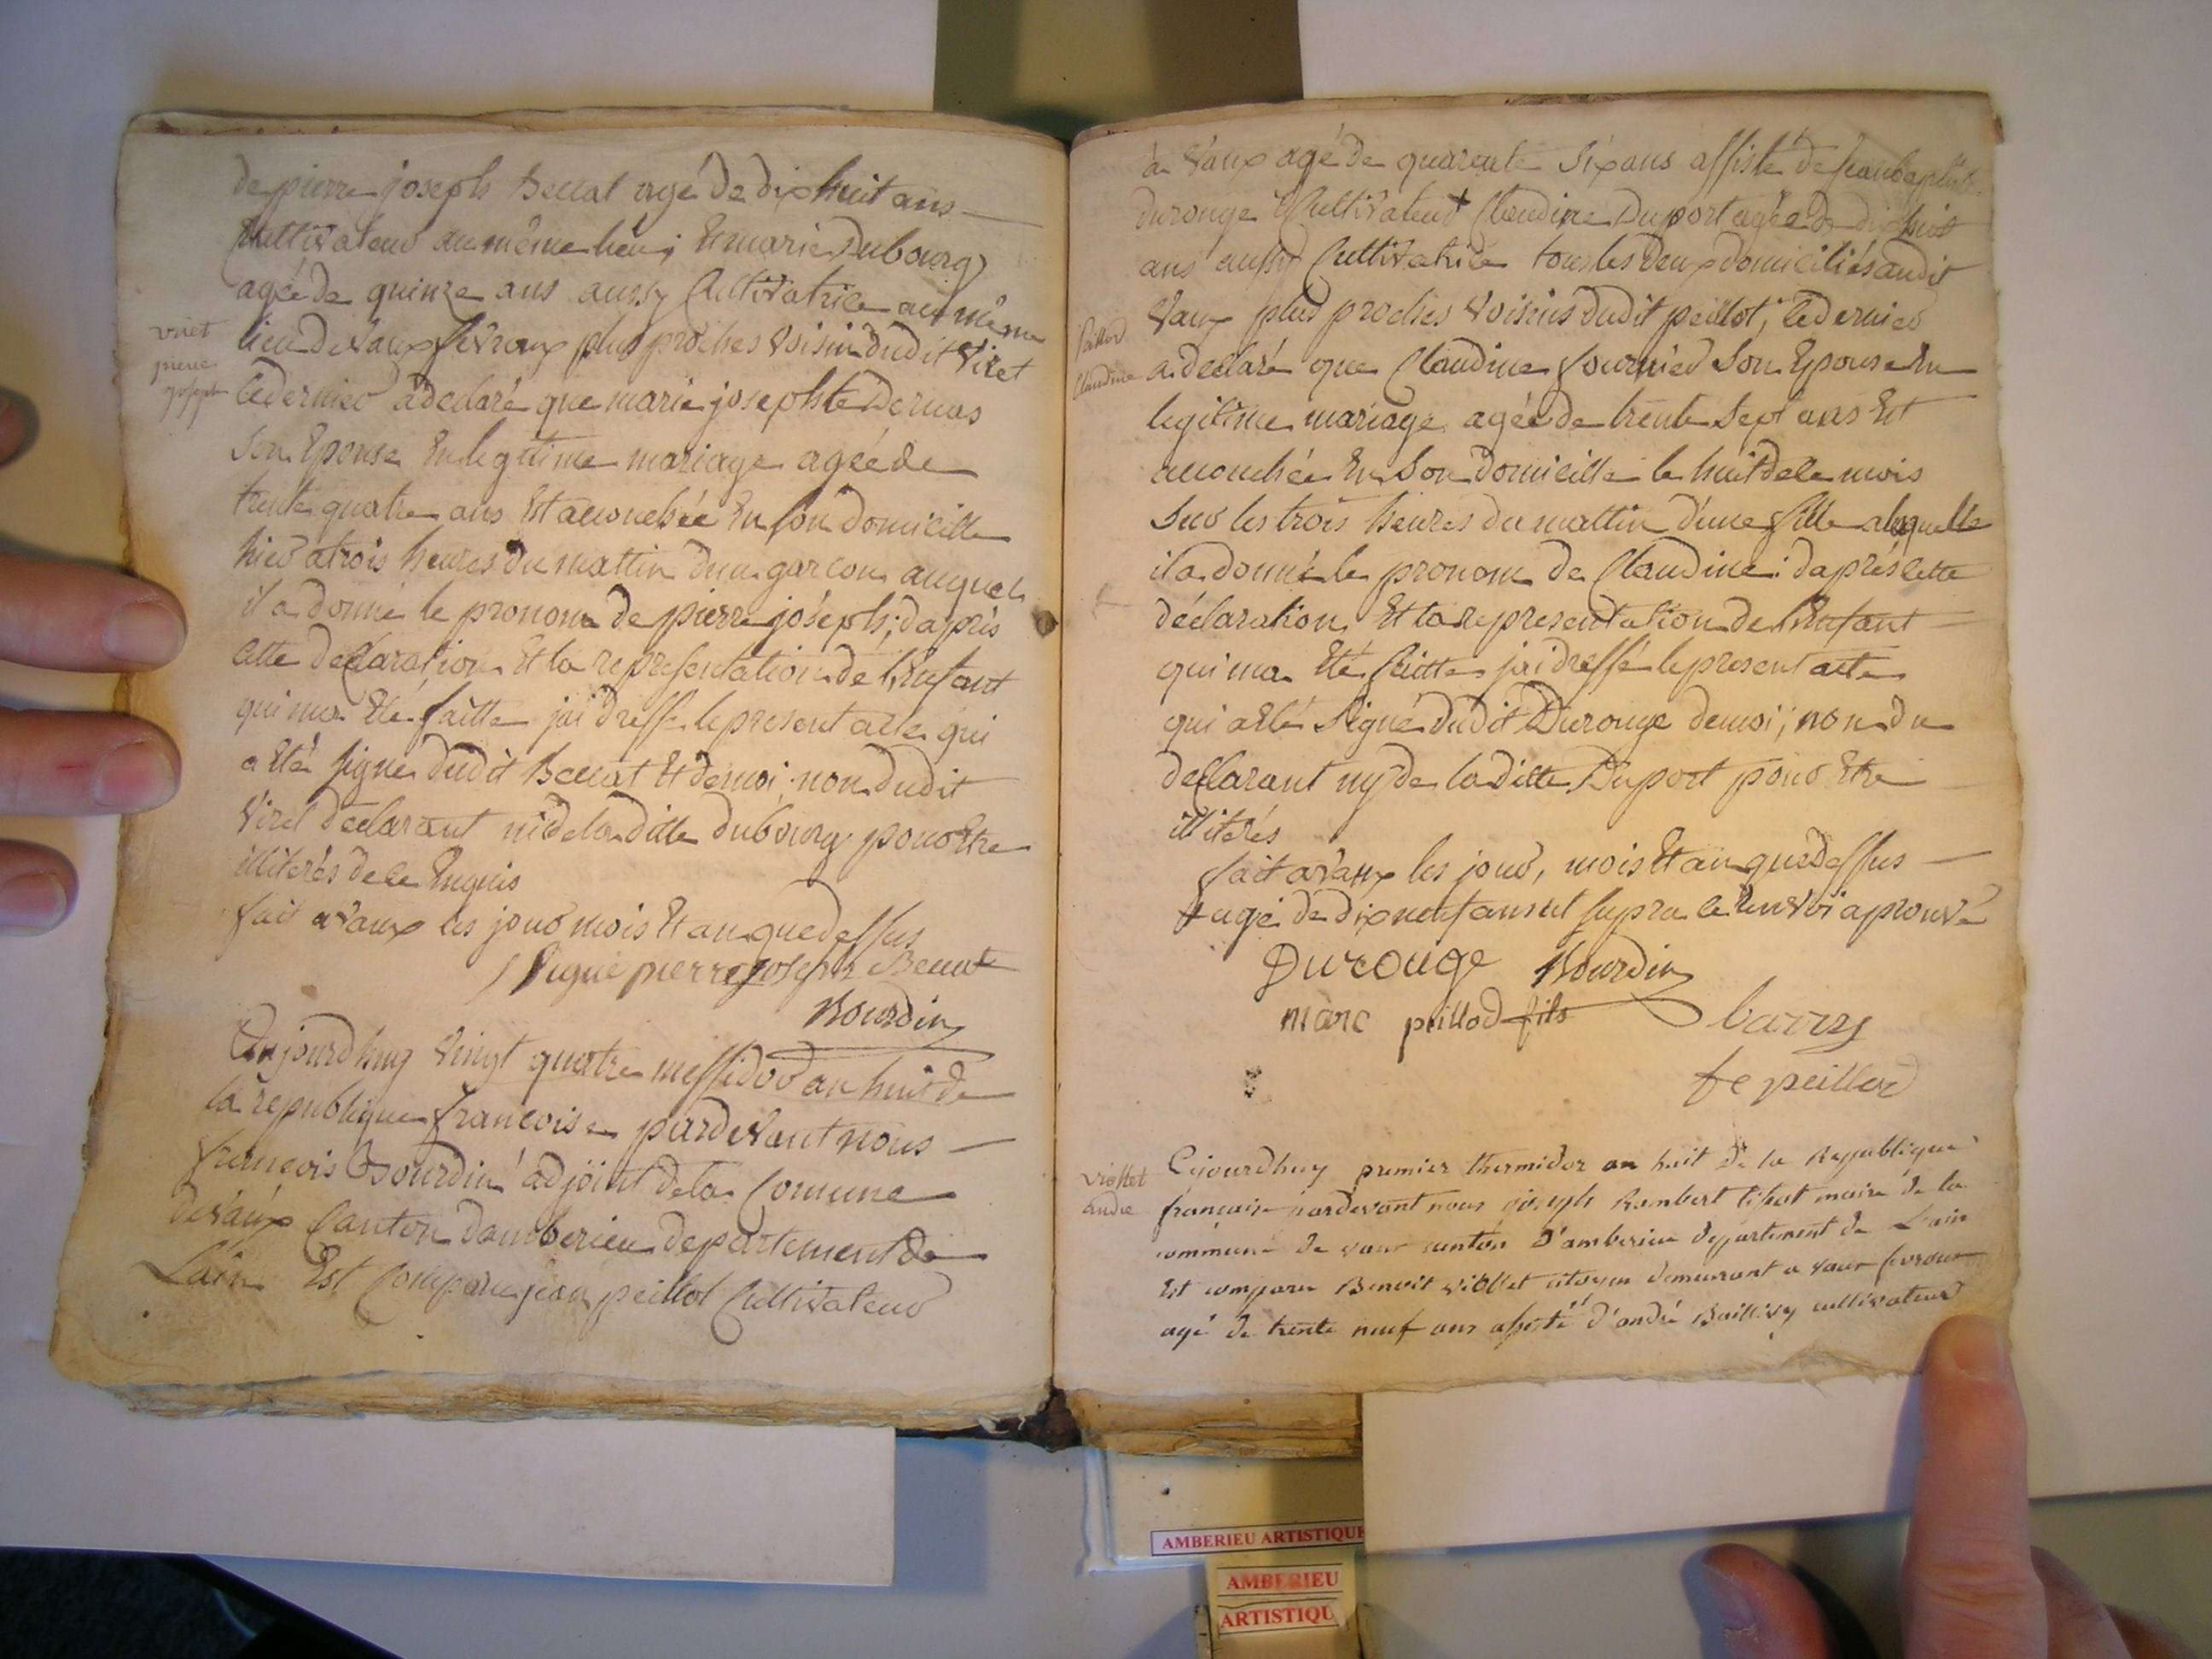 de pierre joseph Beccat agé de dix huit ans
Cultivateur au même lieu; Et marie Dubourg
agée de quinze ans aussy Cultivatrice au même
lieu de Vaux fevroux plus proches voisin dudit Viret
viret
pierre
joseph
Ce dernier a declaré que marie josephte Dernas
Son Epouse En legitime mariage agée de
trente quatre ans Est accouchée En son domicille
hier a trois heures du mattin d'un garcon auquel
il a donné le pronom de pierre joseph; d'après
cette declaration Et la representation de l'Enfant
qui ma Eté faitte jai dressé le present acte qui
a Eté signé dudit Beccat Et de moi; non dudit
Viret déclarant ni de la ditte dubourg pour Etre
illiterés de ce Enquis
fait a vaux les jour mois Et an que dessus
Signé pierre joseph Beccat
Bourdin
Aujourdhuy vingt quatre messidor an huit de
la republique francoise pardevant nous
francois Bourdin adjoint de la Comune
de vaux Canton damberieu departement de
Lain Est Comparu jean peillot Cultivateur
a Vaux agé de quarente six ans assisté de jean baptiste
durouge Cultivateur + Claudine Duport agée de dix huit
ans aussy Cultivatrice tous les deux domiciliés audit
Vaux plus proches voisins dudit peillot; Ce dernier
Peillod
Claudine
a declaré que Claudine fournier Son Epouse En
legitime mariage agée de trente Sept ans Est
accouchée En Son domicille le huit de ce mois
Sur les trois heures du mattin d'une fille a laquelle
il a donné le pronom de Claudine: d'après cette
déclaration Et la representation de l'Enfant
qui ma Eté faitte jai dressé le present acte
qui a Eté Signé dudit Durouge de moi; non du
declarant ny de la ditte Duport pour Etre
illiterés
fait a vaux les jour, mois Et an que dessus
+ agé de dix neuf ans Supra le renvoi aprouvé
Durouge Bourdin
marc peillod fils barry
fe peillod
Viollet
andre
Cejourdhuy premier thermidor an huit de la Republique
française pardevant nous joseph Rambert maire de la
commune de vaux canton d'amberieu departement de Lain
Est comparu Benoit viollet citoyen demeurant a vaux fevroux
agé de trente neuf ans assisté d'andré Baillivy cultivateur
AMBERIEU ARTISTIQUE
AMBERIEU
ARTISTIQU